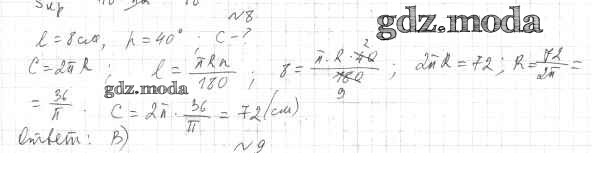 №8
gdz.moda
l = 8 см, n = 40° . C - ?
C = 2πR ; l = πRn/180 ; 8 = π·R·40/180 2 9 ; 2πR = 72 ; R = 72/2π =
gdz.moda
= 36/π . C = 2π · 36/π = 72 (см)
Ответ: В)
№9